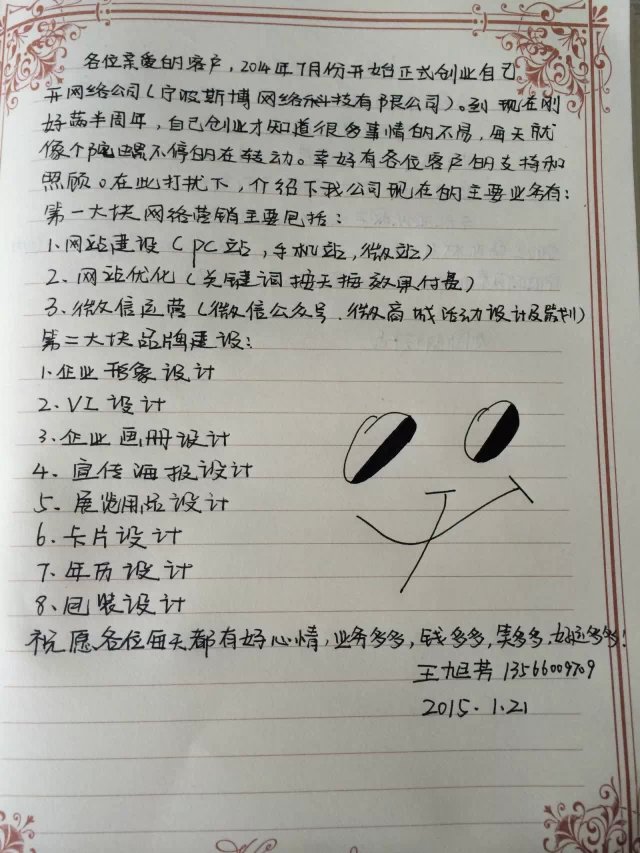 各位亲爱的客户，2014年7月份开始正式创业自己
开网络公司（宁波斯博网络科技有限公司）。到现在刚
好满半周年，自己创业才知道很多事情的不易，每天就
像个陀螺不停的在转动。幸好有各位客户的支持和
照顾。在此打扰下，介绍下我公司现在的主要业务有：
第一大块网络营销主要包括：
1.网站建设（PC站，手机站，微站）
2、网站优化（关键词按天按效果付费）
3、微信运营（微信公众号、微商城活动设计及策划）
第二大块品牌建设：
1.企业形象设计
2.VI设计
3.企业画册设计
4、宣传海报设计
5、展览用品设计
6.卡片设计
7.年历设计
8.包装设计
祝愿各位每天都有好心情，业务多多，钱多多，笑多多，好运多多！
王旭芳 13566009709
2015.1.21